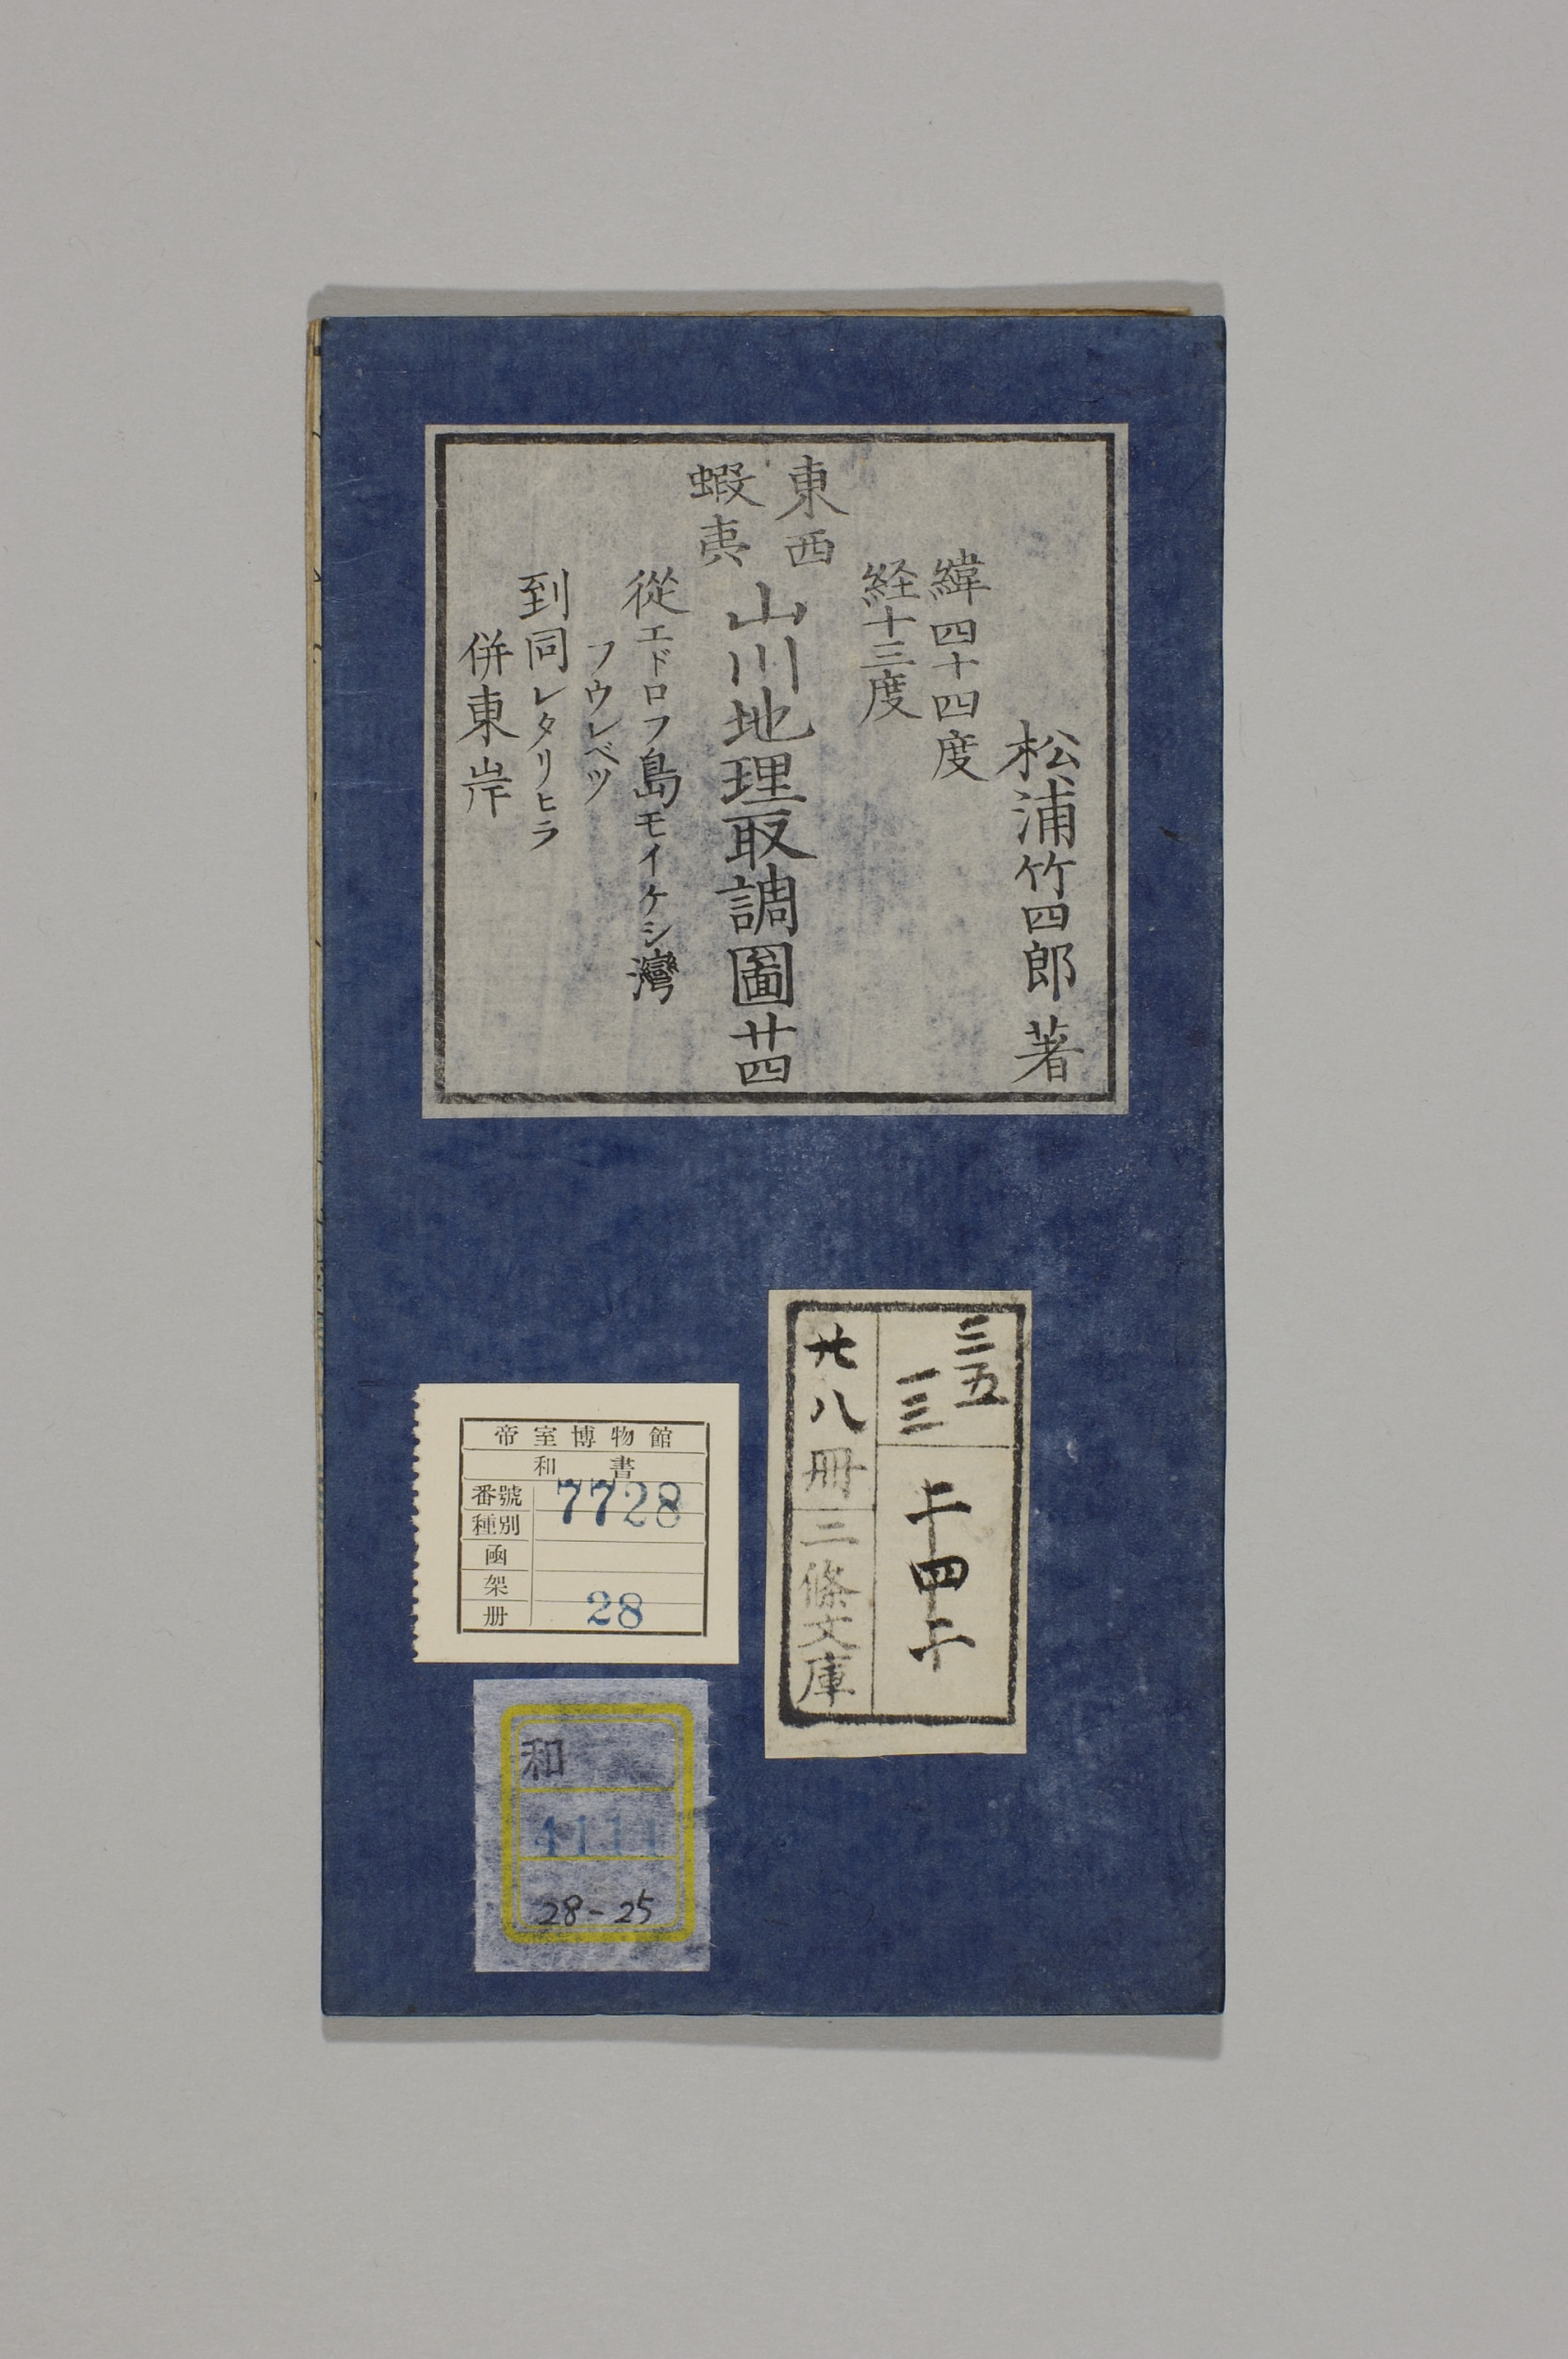 松浦竹四郎著
緯四十四度
経十三度
東西
蝦夷
山川地理取調圖廿四
從エドロフ島モイケシ灣
フウレベツ
到同レタリヒラ
併東岸
三五
三
廿八冊
二條文庫
帝室博物館
和書
番號 7728
種別
凾
架
册 28
和
4111
28-25